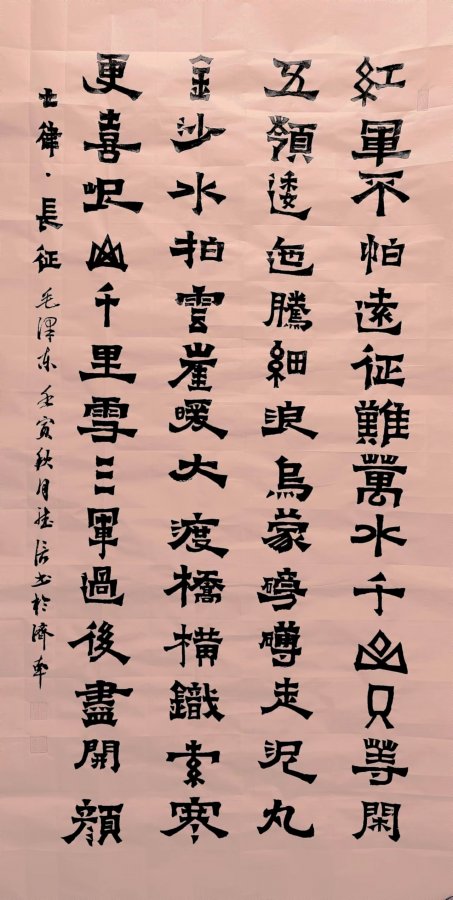 紅軍不怕遠征難萬水千山只等閑
五嶺逶迤騰細浪烏蒙磅礴走泥丸
金沙水拍雲崖暖大渡橋橫鐵索寒
更喜岷山千里雪三軍過後盡開顏
七律·長征 毛澤东 壬寅秋月信书於濟